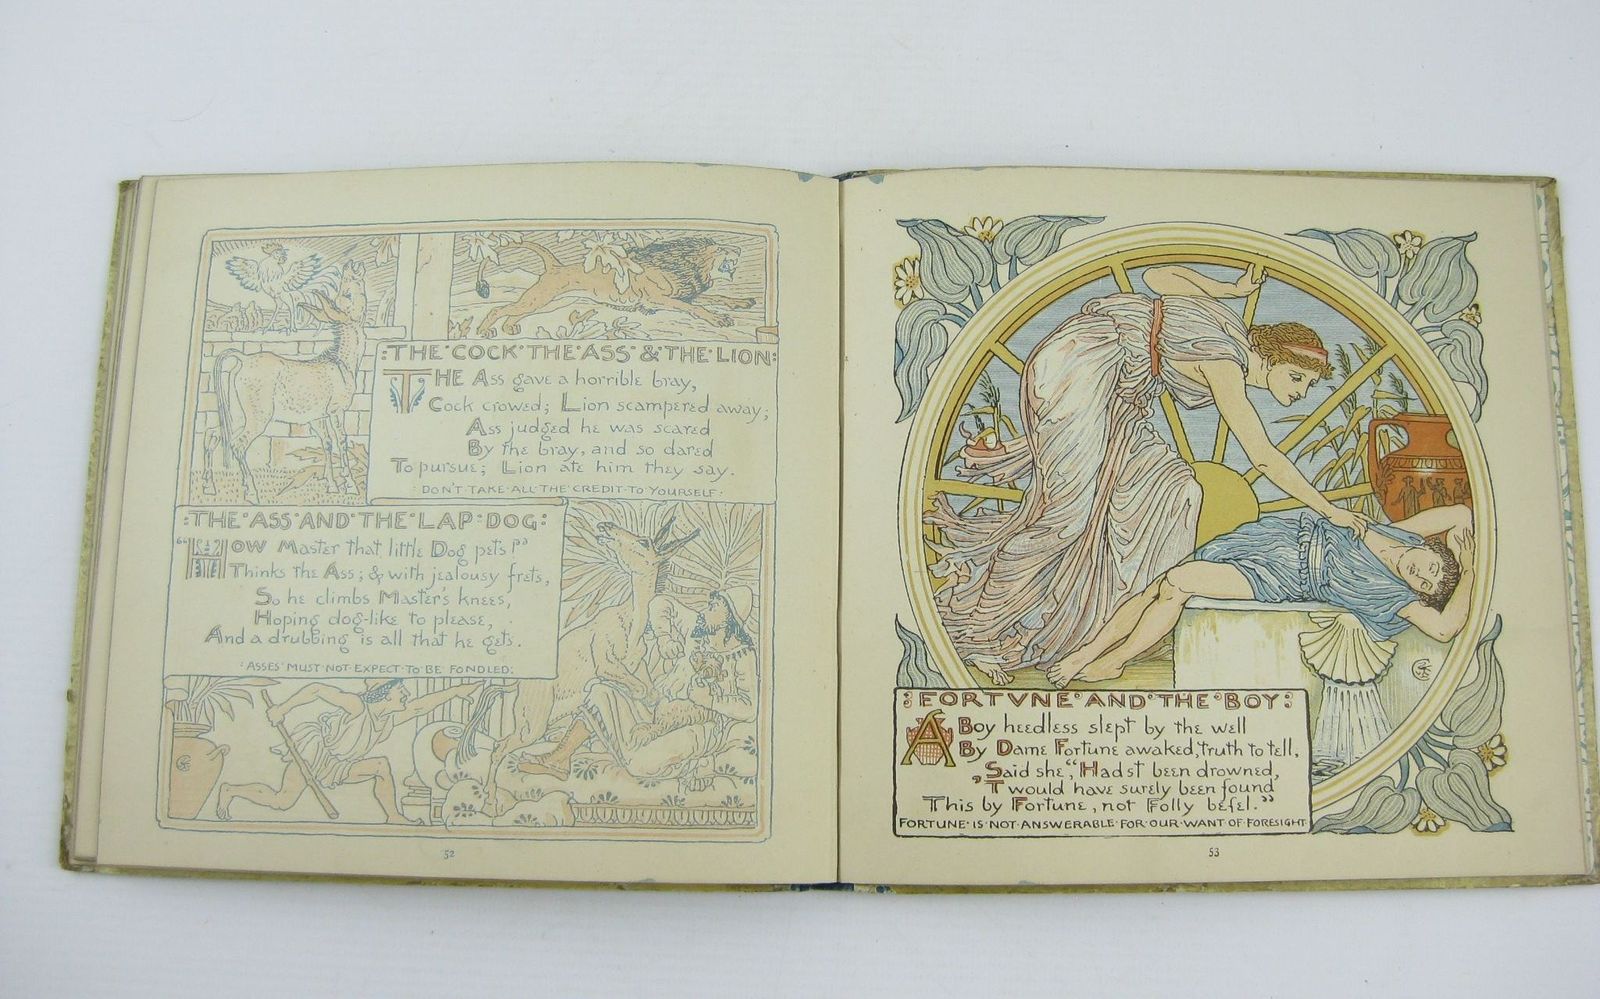 :THE·COCK·THE·ASS·&·THE·LION:
THE Ass gave a horrible bray,
Cock crowed; Lion scampered away;
Ass judged he was scared
By the bray, and so dared
To pursue; Lion ate him they say.
:DON'T·TAKE·ALL·THE·CREDIT·TO·YOURSELF:
:THE·ASS·AND·THE·LAP·DOG:
"HOW Master that little Dog pets!"
Thinks the Ass; & with jealousy frets,
So he climbs Master's knees,
Hoping dog-like to please,
And a drubbing is all that he gets.
:ASSES·MUST·NOT·EXPECT·TO·BE·FONDLED:
52
:FORTVNE·AND·THE·BOY:
A Boy heedless slept by the well
By Dame Fortune awaked, truth to tell,
Said she, "Hadst been drowned,
'Twould have surely been found
This by Fortune, not Folly befel."
FORTUNE·IS·NOT·ANSWERABLE·FOR·OUR·WANT·OF·FORESIGHT
53